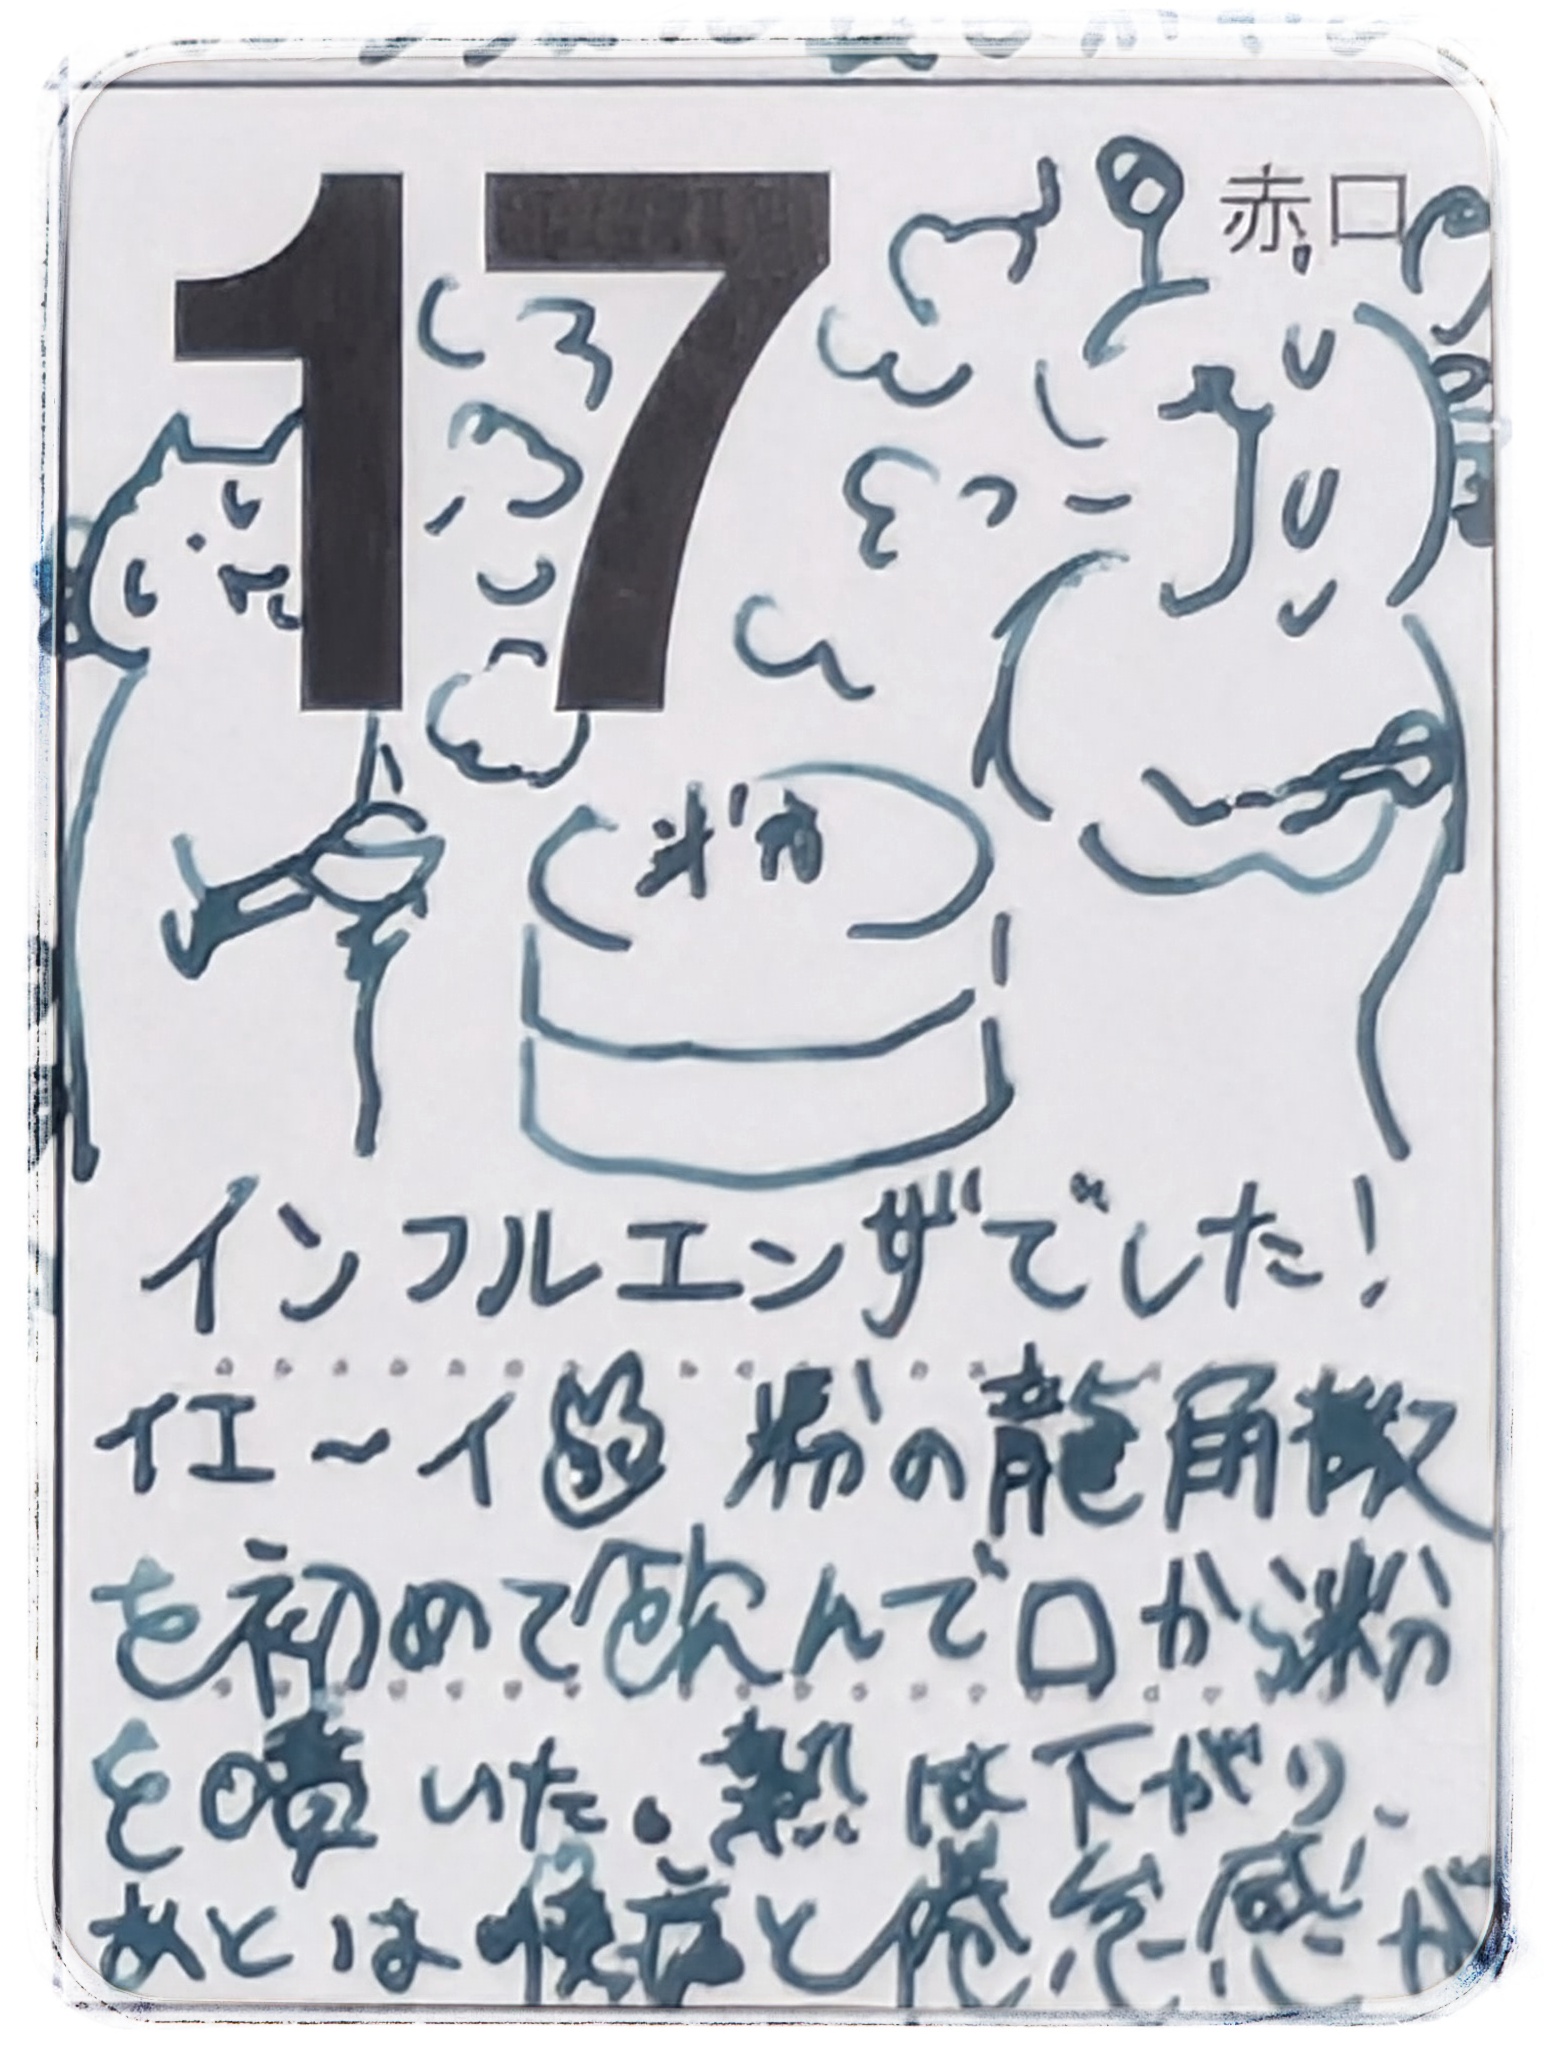 17
赤口
粉
インフルエンザでした!
イエ〜イ 粉の龍角散
を初めて飲んで口から粉
を噴いた。熱は下がり、
あとは喉と倦怠感が